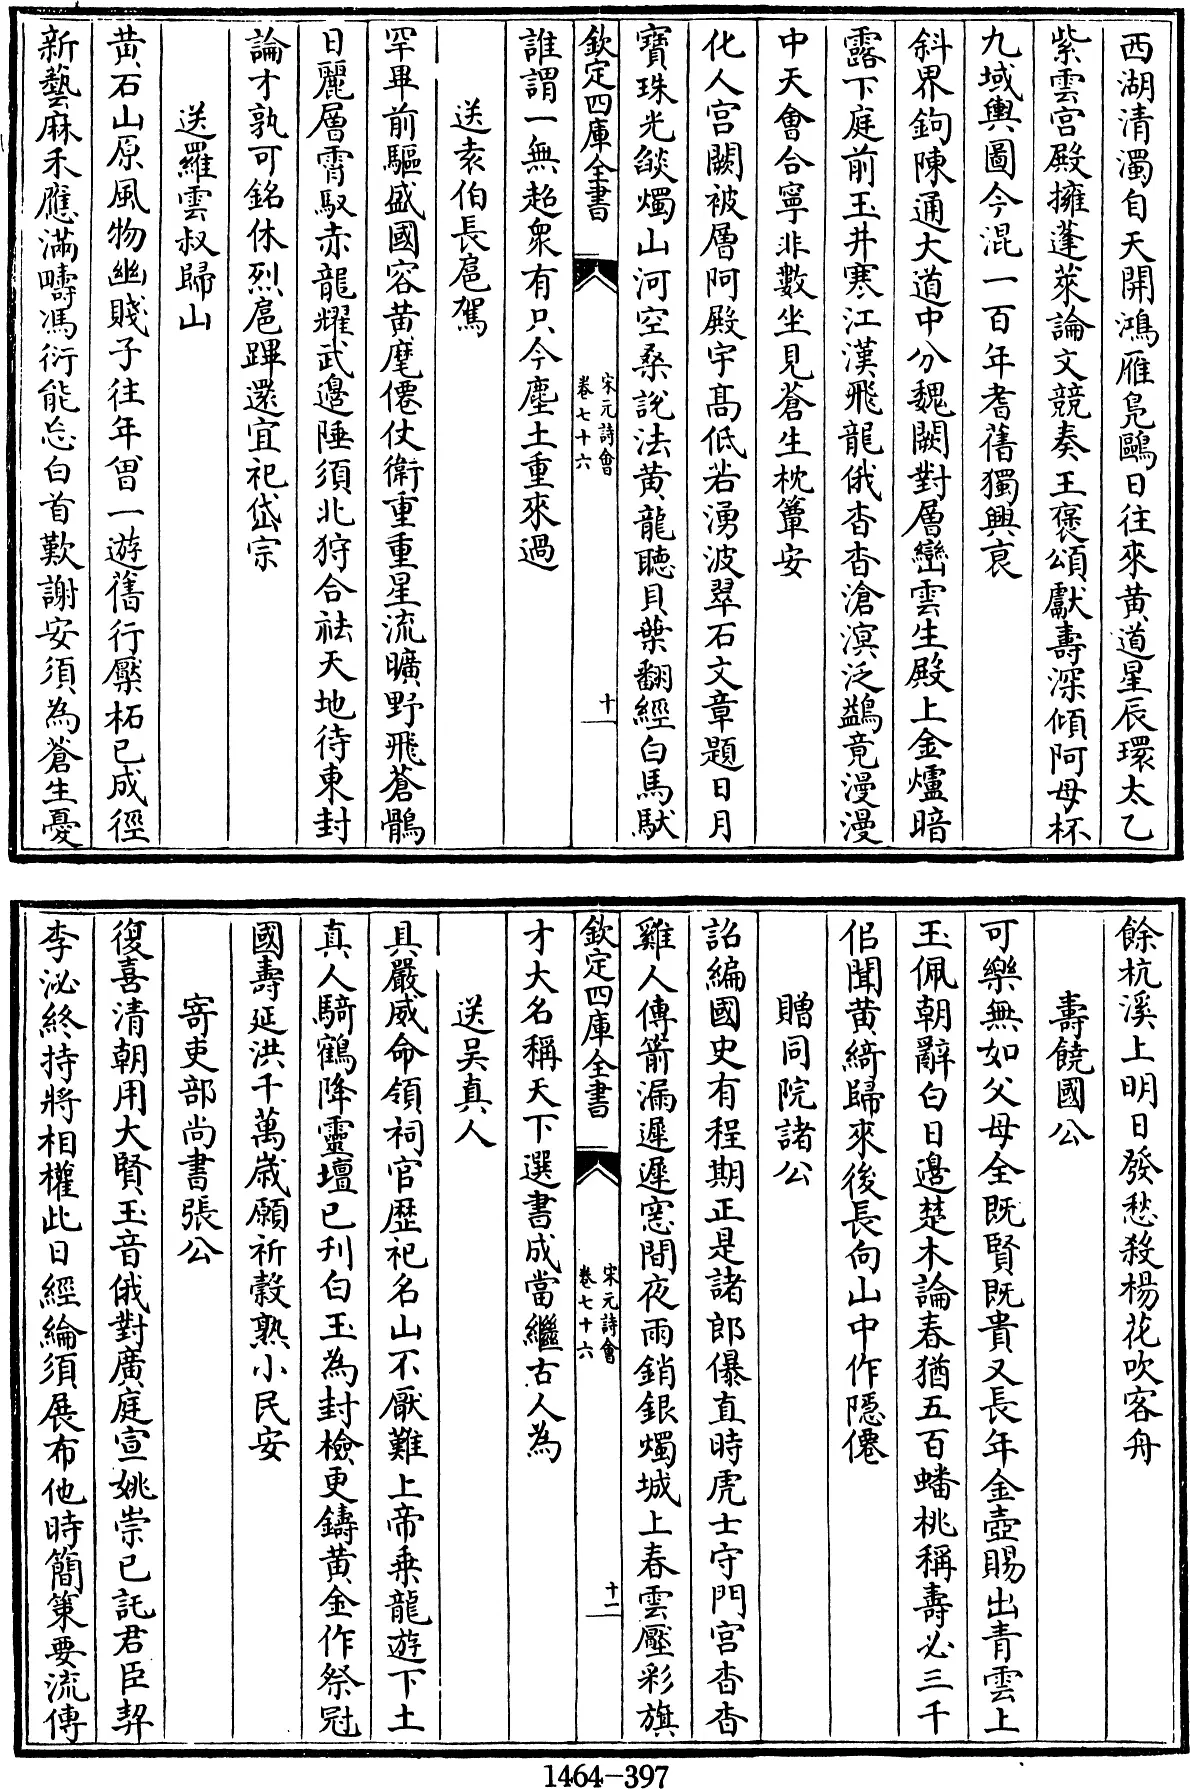 西湖清濁自天開鴻雁鳬鷗日往來黄道星辰環太乙
紫雲宫殿擁蓬萊論文競奏王褒頌獻壽深傾阿母杯
九域輿圖今混一百年耆舊獨興哀
斜界鉤陳通大道中分魏闕對層巒雲生殿上金爐暗
露下庭前玉井寒江漢飛龍俄杳杳滄溟泛鷁竟漫漫
中天會合寧非數坐見蒼生枕簟安
化人宫闕被層阿殿宇髙低若湧波翠石文章題日月
寶珠光燄燭山河空桑說法黄龍聽貝葉翻經白馬馱
欽定四庫全書
宋元詩會
卷七十六
十一
誰謂一無超衆有只今塵土重來過
送袁伯長扈駕
罕畢前驅盛國容黄麾僊仗衛重重星流曠野飛蒼鶻
日麗層霄馭赤龍耀武邊陲須北狩合祛天地待東封
論才孰可銘休烈扈蹕還宜祀岱宗
送羅雲叔歸山
黄石山原風物幽賤子往年曾一遊舊行檿柘已成徑
新藝麻禾應滿疇馮衍能忘白首歎謝安須為蒼生憂
餘杭溪上明日發愁殺楊花吹客舟
壽饒國公
可樂無如父母全既賢既貴又長年金壺賜出青雲上
玉佩朝辭白日邊楚木論春猶五百蟠桃稱壽必三千
侣聞黄綺歸來後長向山中作隠僊
贈同院諸公
詔編國史有程期正是諸郎儤直時虎士守門宫杳杳
雞人傳箭漏遲遲窓間夜雨銷銀燭城上春雲壓彩旗
欽定四庫全書
宋元詩會
卷七十六
十二
才大名稱天下選書成當繼古人為
送吴真人
具嚴威命領祠官歴祀名山不厭難上帝乗龍遊下土
真人騎鶴降靈壇已刋白玉為封檢更鑄黄金作祭冠
國壽延洪千萬歳願祈穀熟小民安
寄吏部尚書張公
復喜清朝用大賢玉音俄對廣庭宣姚崇已託君臣契
李泌終持將相權此日經綸須展布他時簡策要流傳
1464-397